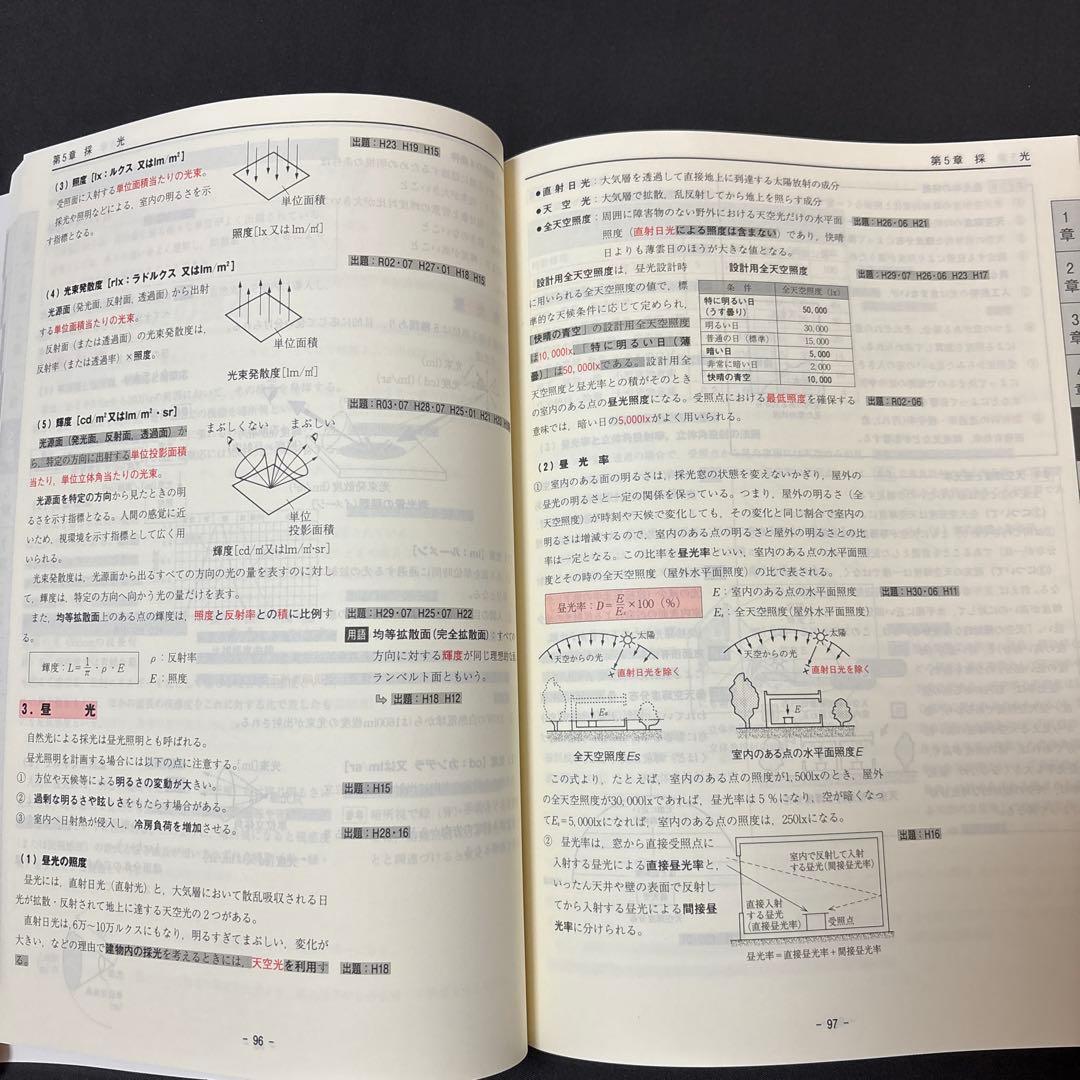 第5章 採 光
(3) 照度 [lx:ルクス 又はlm/m²]
受照面に入射する単位面積当たりの光束。
採光や照明などによる、室内の明るさを示
す指標となる。
単位面積
照度[lx 又はlm/㎡]
出題:H23 H19 H15
(4) 光束発散度 [rlx:ラドルクス 又はlm/m²]
光源面 (発光面、反射面、透過面) から出射
する単位面積当たりの光束。
反射面 (または透過面) の光束発散度は、
反射率 (または透過率) ×照度。
単位面積
光束発散度[lm/㎡]
出題:R02・07 H27・01 H18 H15
(5) 輝度 [cd/m²又はlm/m²・sr]
光源面 (発光面、反射面、透過面) か
ら、特定の方向に出射する単位投影面積
当たり、単位立体角当たりの光束。
光源面を特定の方向から見たときの明
るさを示す指標となる。人間の感覚に近
いため、視環境を示す指標として広く用
いられる。
まぶしくない まぶしい
単位
投影面積
輝度[cd/㎡又はlm/㎡・sr]
出題:R03・07 H28・07 H25・01 H21
光束発散度は、光源面から出るすべての方向の光の量を表すのに対し
て、輝度は、特定の方向へ向かう光の量だけを表す。
また、均等拡散面上のある点の輝度は、照度と反射率との積に比例す
る。
輝度:L=1/π・ρ・E
ρ:反射率
E:照度
出題:H29・07 H25・07 H22
用語 均等拡散面(完全拡散面):すべての
方向に対する輝度が同じ理想的な
ランベルト面ともいう。
出題:H18 H12
3.昼 光
自然光による採光は昼光照明とも呼ばれる。
昼光照明を計画する場合には以下の点に注意する。
① 方位や天候等による明るさの変動が大きい。
② 過剰な明るさや眩しさをもたらす場合がある。
③ 室内へ日射熱が侵入し、冷房負荷を増加させる。
出題:H15
出題:H28・16
(1) 昼光の照度
昼光には、直射日光 (直射光) と、大気層において散乱吸収される日
光が拡散・反射されて地上に達する天空光の2つがある。
直射日光は、6万~10万ルクスにもなり、明るすぎてまぶしい、変化が
大きい、などの理由で建物内の採光を考えるときには、天空光を利用す
る。
出題:H18
- 96 -
第5章 採 光
●直射日光:大気層を透過して直接地上に到達する太陽放射の成分
●天 空 光:大気層で拡散、乱反射してから地上を照らす成分
●全天空照度:周囲に障害物のない野外における天空光だけの水平面
照度 (直射日光による照度は含まない) であり、快晴
日よりも薄雲日のほうが大きな値となる。
出題:H26・06 H21
設計用全天空照度は、昼光設計時
に用いられる全天空照度の値で、標
準的な天候条件に応じて定められ、
「快晴の青空」の設計用全天空照度
は10,000lx、「特に明るい日 (薄
曇)」は50,000lxである。設計用全
天空照度と昼光率との積がそのとき
の室内のある点の昼光照度になる。受照点における最低照度を確保する
意味では、暗い日の5,000lxがよく用いられる。
設計用全天空照度
条 件 全天空照度 (lx)
特に明るい日
(うす曇り) 50,000
明るい日 30,000
普通の日 (標準) 15,000
暗い日 5,000
非常に暗い日 2,000
快晴の青空 10,000
出題:H29・07 H26・06 H23 H17
出題:R02・06
(2) 昼 光 率
① 室内のある面の明るさは、採光窓の状態を変えないかぎり、屋外の
昼光の明るさと一定の関係を保っている。つまり、屋外の明るさ (全
天空照度) が時刻や天候で変化しても、その変化と同じ割合で室内の
明るさは増減するので、室内のある点の明るさと屋外の明るさとの比
率は一定となる。この比率を昼光率といい、室内のある点の水平面照
度とその時の全天空照度 (屋外水平面照度) の比で表される。
昼光率:D=E/Es×100 (%)
E:室内のある点の水平面照度
Es:全天空照度(屋外水平面照度)
出題:H30・06 H11
太陽
天空からの光
直射日光を除く
Es
全天空照度Es
太陽
天空からの光
直射日光を除く
E
室内のある点の水平面照度E
この式より、たとえば、室内のある点の照度が1,500lxのとき、屋外
の全天空照度が30,000lxであれば、昼光率は5%になり、空が暗くなっ
てEs=5,000lxになれば、室内のある点の照度は、250lxになる。
② 昼光率は、窓から直接受照点に
入射する昼光による直接昼光率と、
いったん天井や壁の表面で反射し
てから入射する昼光による間接昼
光率に分けられる。
室内で反射して入射
する昼光(間接昼光率)
直接入射
する昼光
(直接昼光率)
受照点
昼光率=直接昼光率+間接昼光率
出題:H16
- 97 -
1
章
2
章
3
章